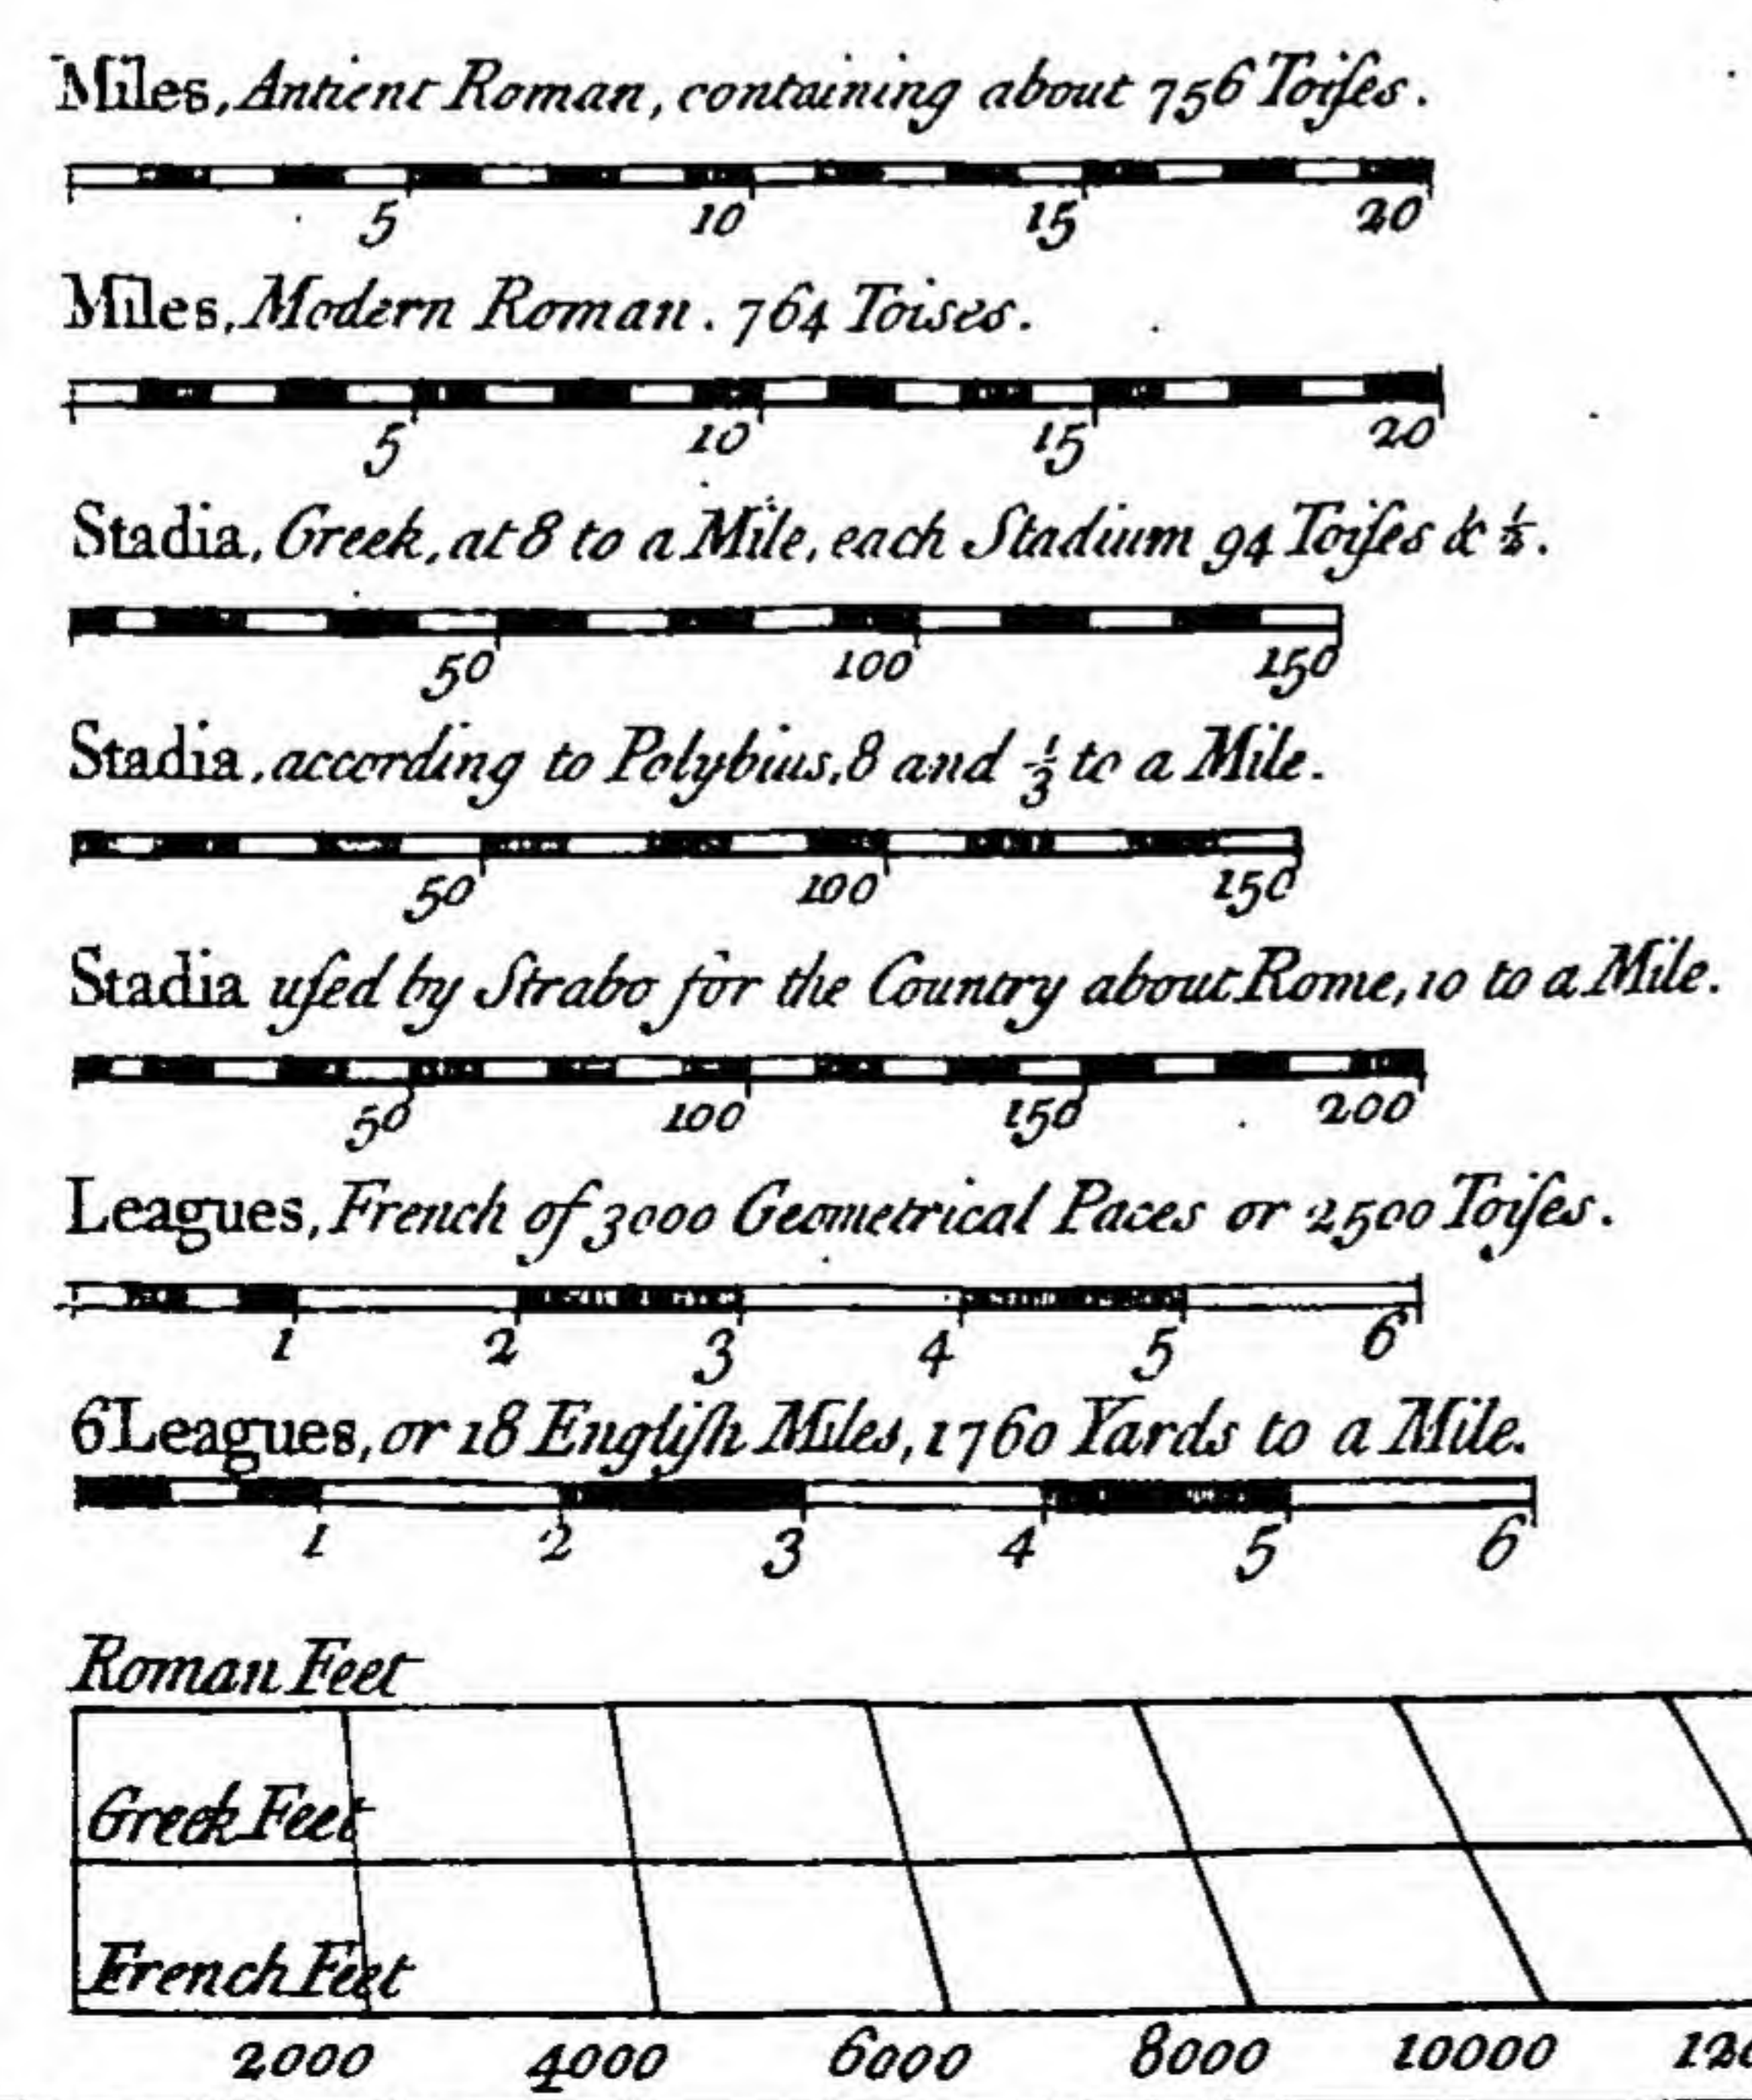 Miles, Antient Roman, containing about 756 Toiſes.
5 10 15 20
Miles, Modern Roman. 764 Toises.
5 10 15 20
Stadia, Greek, at 8 to a Mile, each Stadium 94 Toiſes & ½.
50 100 150
Stadia, according to Polybius, 8 and ⅓ to a Mile.
50 100 150
Stadia uſed by Strabo for the Country about Rome, 10 to a Mile.
50 100 150 200
Leagues, French of 3000 Geometrical Paces or 2500 Toiſes.
1 2 3 4 5 6
6 Leagues, or 18 Engliſh Miles, 1760 Yards to a Mile.
1 2 3 4 5 6
Roman Feet
Greek Feet
French Feet
2000 4000 6000 8000 10000